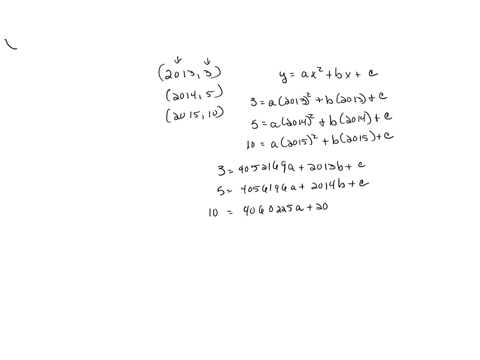 (2013, 3)
(2014, 5)
(2015, 10)
y = ax² + bx + c
3 = a(2013)² + b(2013) + c
5 = a(2014)² + b(2014) + c
10 = a(2015)² + b(2015) + c
3 = 4052169a + 2013b + c
5 = 4056196a + 2014b + c
10 = 4060225a + 20